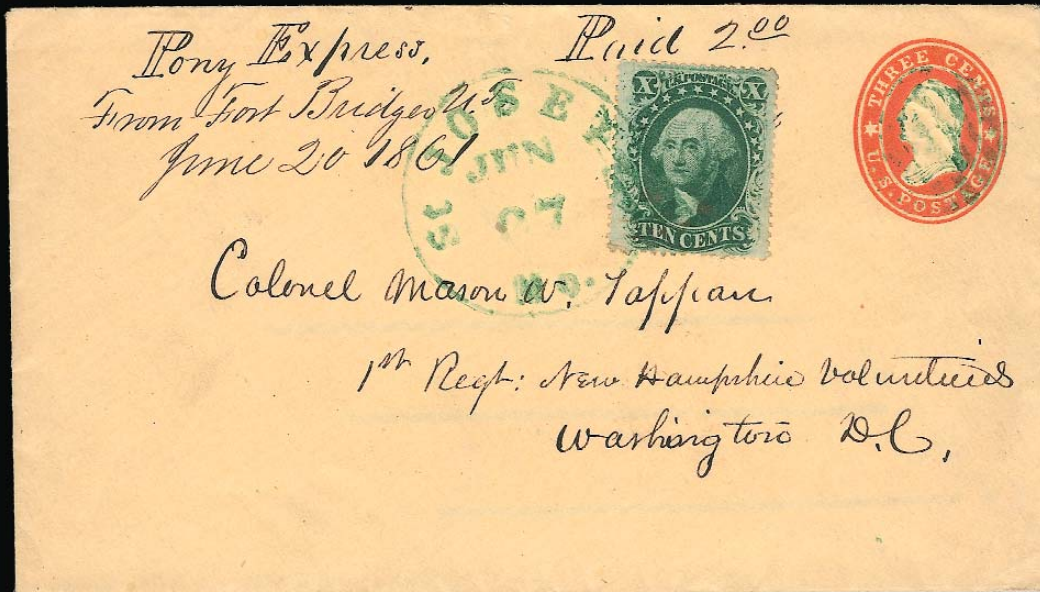 Pony Express. Paid 2.00
From Fort Bridger U.T.
June 20 1861
St JOSEPH
JUN
Mo.
X TEN POSTAGE X
TEN CENTS
THREE CENTS
U.S. POSTAGE
Colonel Mason W. Tappan
1st Regt: New Hampshire Volunteers
Washington D.C.